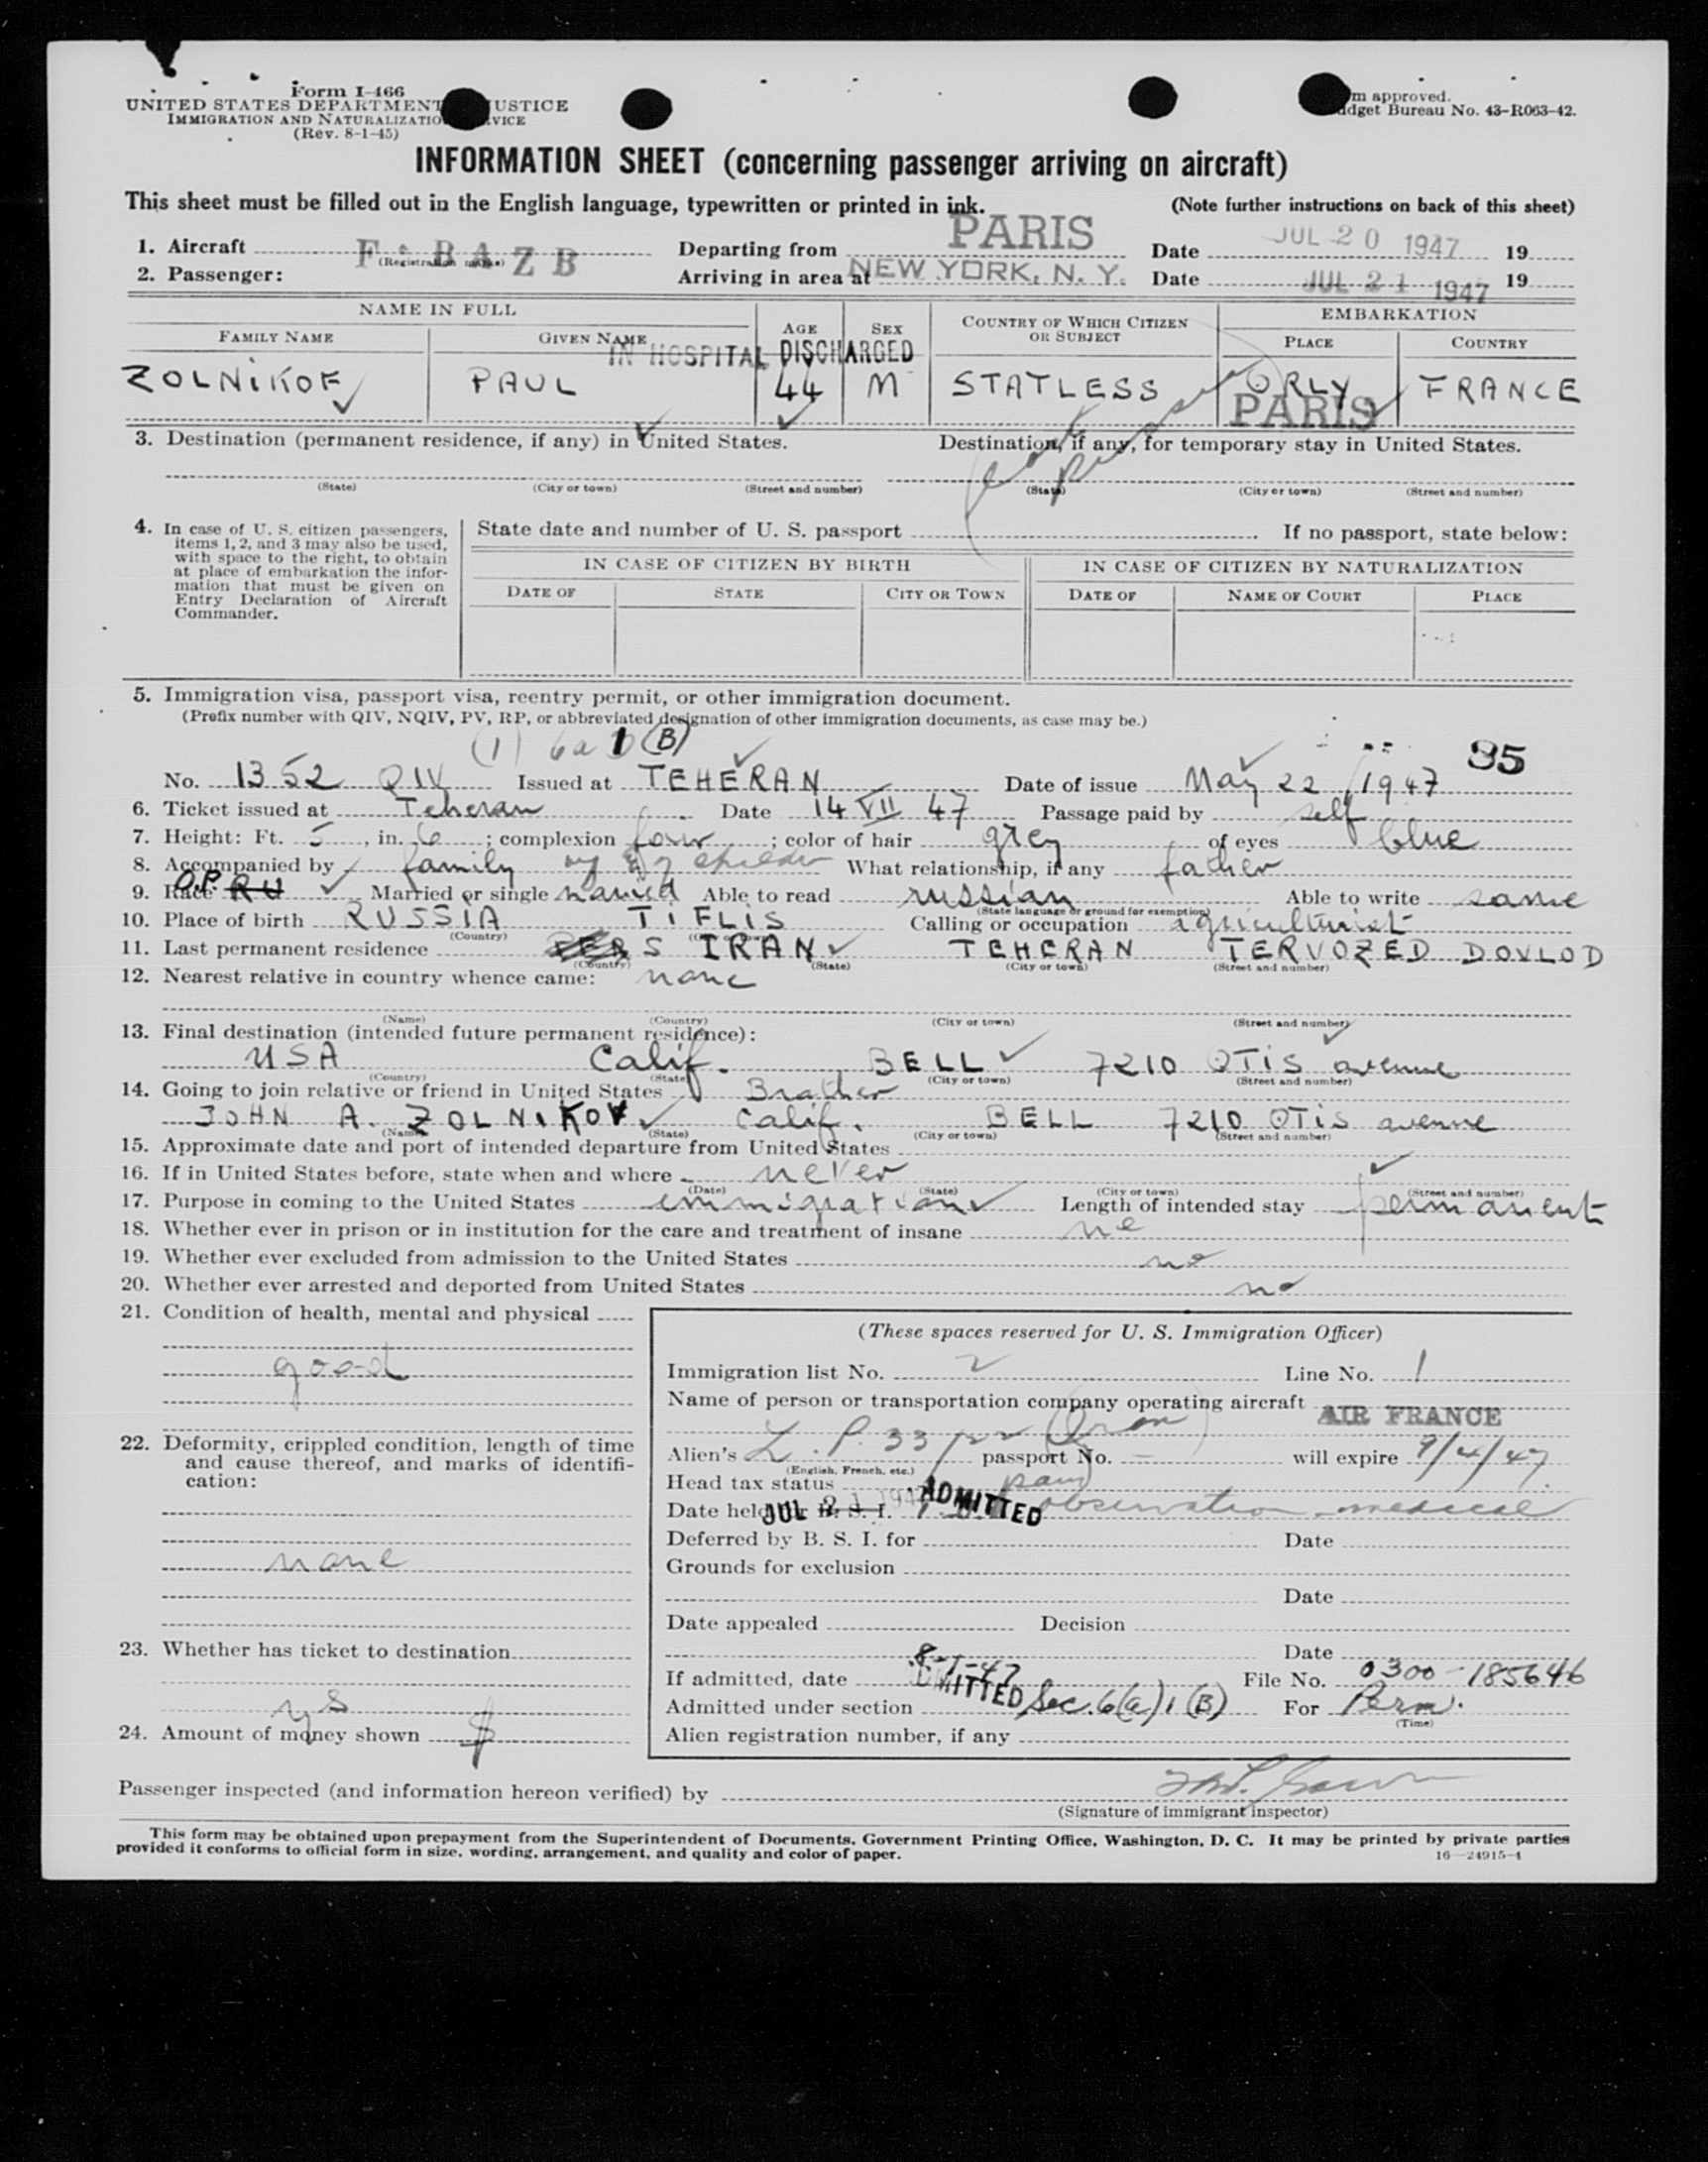 Form I-466
UNITED STATES DEPARTMENT JUSTICE
IMMIGRATION AND NATURALIZATIO VICE
(Rev. 8-1-45)
m approved.
dget Bureau No. 43-R063-42.
INFORMATION SHEET (concerning passenger arriving on aircraft)
This sheet must be filled out in the English language, typewritten or printed in ink. (Note further instructions on back of this sheet)
1. Aircraft F-BAZB Departing from PARIS Date JUL 20 1947 19
(Registration marks)
2. Passenger: Arriving in area at NEW YORK, N. Y. Date JUL 21 1947 19
NAME IN FULL AGE SEX COUNTRY OF WHICH CITIZEN OR SUBJECT EMBARKATION
FAMILY NAME GIVEN NAME PLACE COUNTRY
IN HOSPITAL DISCHARGED
ZOLNIKOF PAUL 44 M STATLESS ORLY FRANCE
PARIS
3. Destination (permanent residence, if any) in United States. Destination, if any, for temporary stay in United States.
(State) (City or town) (Street and number) (State) (City or town) (Street and number)
4. In case of U. S. citizen passengers, items 1, 2, and 3 may also be used, with space to the right, to obtain at place of embarkation the information that must be given on Entry Declaration of Aircraft Commander.
State date and number of U. S. passport If no passport, state below:
IN CASE OF CITIZEN BY BIRTH IN CASE OF CITIZEN BY NATURALIZATION
DATE OF STATE CITY OR TOWN DATE OF NAME OF COURT PLACE
5. Immigration visa, passport visa, reentry permit, or other immigration document.
(Prefix number with QIV, NQIV, PV, RP, or abbreviated designation of other immigration documents, as case may be.)
(1) 6a 1 (B)
35
No. 1352 QIV Issued at TEHERAN Date of issue May 22 1947
6. Ticket issued at Teheran Date 14 VII 47 Passage paid by self
7. Height: Ft. 5, in. 6; complexion fair; color of hair grey of eyes blue
8. Accompanied by family What relationship, if any father
9. Race O.P. RU Married or single married Able to read russian Able to write same
(State language or ground for exemption)
10. Place of birth RUSSIA TIFLIS Calling or occupation agriculturist
(Country)
11. Last permanent residence PERS IRAN TEHERAN TERVOZED DOVLOD
(Country) (State) (City or town) (Street and number)
12. Nearest relative in country whence came: none
(Name) (Country) (City or town) (Street and number)
13. Final destination (intended future permanent residence):
USA Calif. BELL 7210 OTIS avenue
(Country) (State) (City or town) (Street and number)
14. Going to join relative or friend in United States Brather
JOHN A. ZOLNIKOV Calif. BELL 7210 OTIS avenue
(Name) (State) (City or town) (Street and number)
15. Approximate date and port of intended departure from United States
16. If in United States before, state when and where never
(Date) (State) (City or town) (Street and number)
17. Purpose in coming to the United States immigration Length of intended stay permanent
18. Whether ever in prison or in institution for the care and treatment of insane no
19. Whether ever excluded from admission to the United States no
20. Whether ever arrested and deported from United States no
21. Condition of health, mental and physical
good
22. Deformity, crippled condition, length of time and cause thereof, and marks of identification:
none
23. Whether has ticket to destination
ys
24. Amount of money shown $
(These spaces reserved for U. S. Immigration Officer)
Immigration list No. 2 Line No. 1
Name of person or transportation company operating aircraft
AIR FRANCE
Alien's passport No. - will expire 9/4/47
(English, French, etc.)
Head tax status paid
Date held for B. S. I. JUL 21 1947 ADMITTED observation - medical
Deferred by B. S. I. for Date
Grounds for exclusion
Date
Date appealed Decision
Date
If admitted, date 8-1-47 File No. 0300-185646
ADMITTED
Admitted under section Sec. 6(a) 1 (B) For Perm.
(Time)
Alien registration number, if any
Passenger inspected (and information hereon verified) by
(Signature of immigrant inspector)
This form may be obtained upon prepayment from the Superintendent of Documents, Government Printing Office, Washington, D. C. It may be printed by private parties
provided it conforms to official form in size, wording, arrangement, and quality and color of paper.
16—24915-1